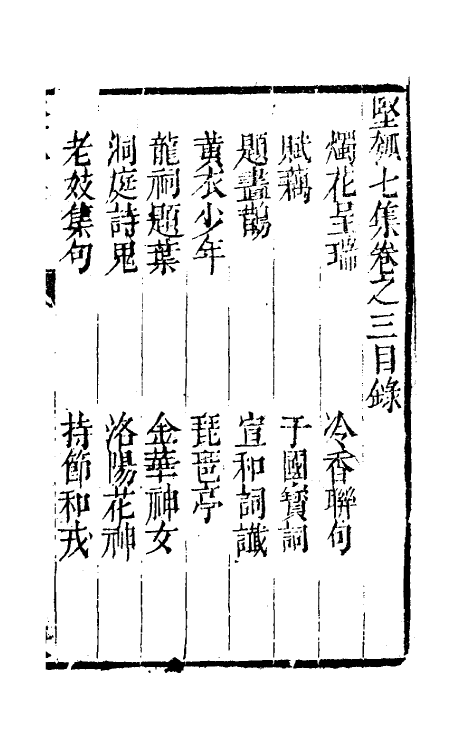 堅瓠七集卷之三目錄
燭花呈瑞 冷香聯句
賦藕 于國寶詞
題畫鵲 宣和詞讖
黃衣少年 琵琶亭
龍祠題葉 金華神女
洞庭詩鬼 洛陽花神
老妓集句 持節和戎